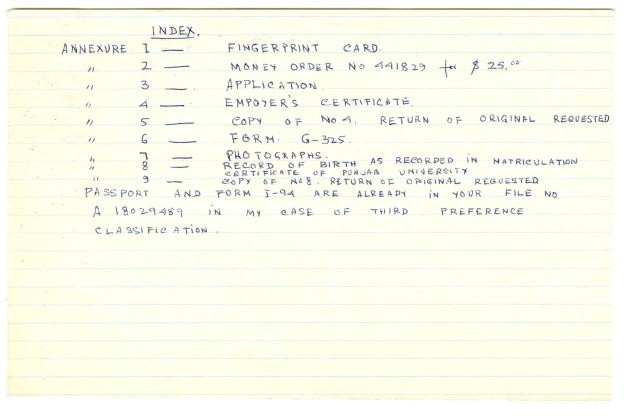 INDEX.
ANNEXURE 1 — FINGERPRINT CARD.
" 2 — MONEY ORDER NO 441829 for $ 25.00
" 3 — APPLICATION.
" 4 — EMPOYER'S CERTIFICATE.
" 5 — COPY OF NO 4. RETURN OF ORIGINAL REQUESTED
" 6 — FORM. G-325.
" 7 — PHOTOGRAPHS.
" 8 — RECORD OF BIRTH AS RECORDED IN MATRICULATION
CERTIFICATE OF PUNJAB UNIVERSITY
" 9 — COPY OF NO 8. RETURN OF ORIGINAL REQUESTED
PASSPORT AND FORM I-94 ARE ALREADY IN YOUR FILE NO
A 18029489 IN MY CASE OF THIRD PREFERENCE
CLASSIFICATION.